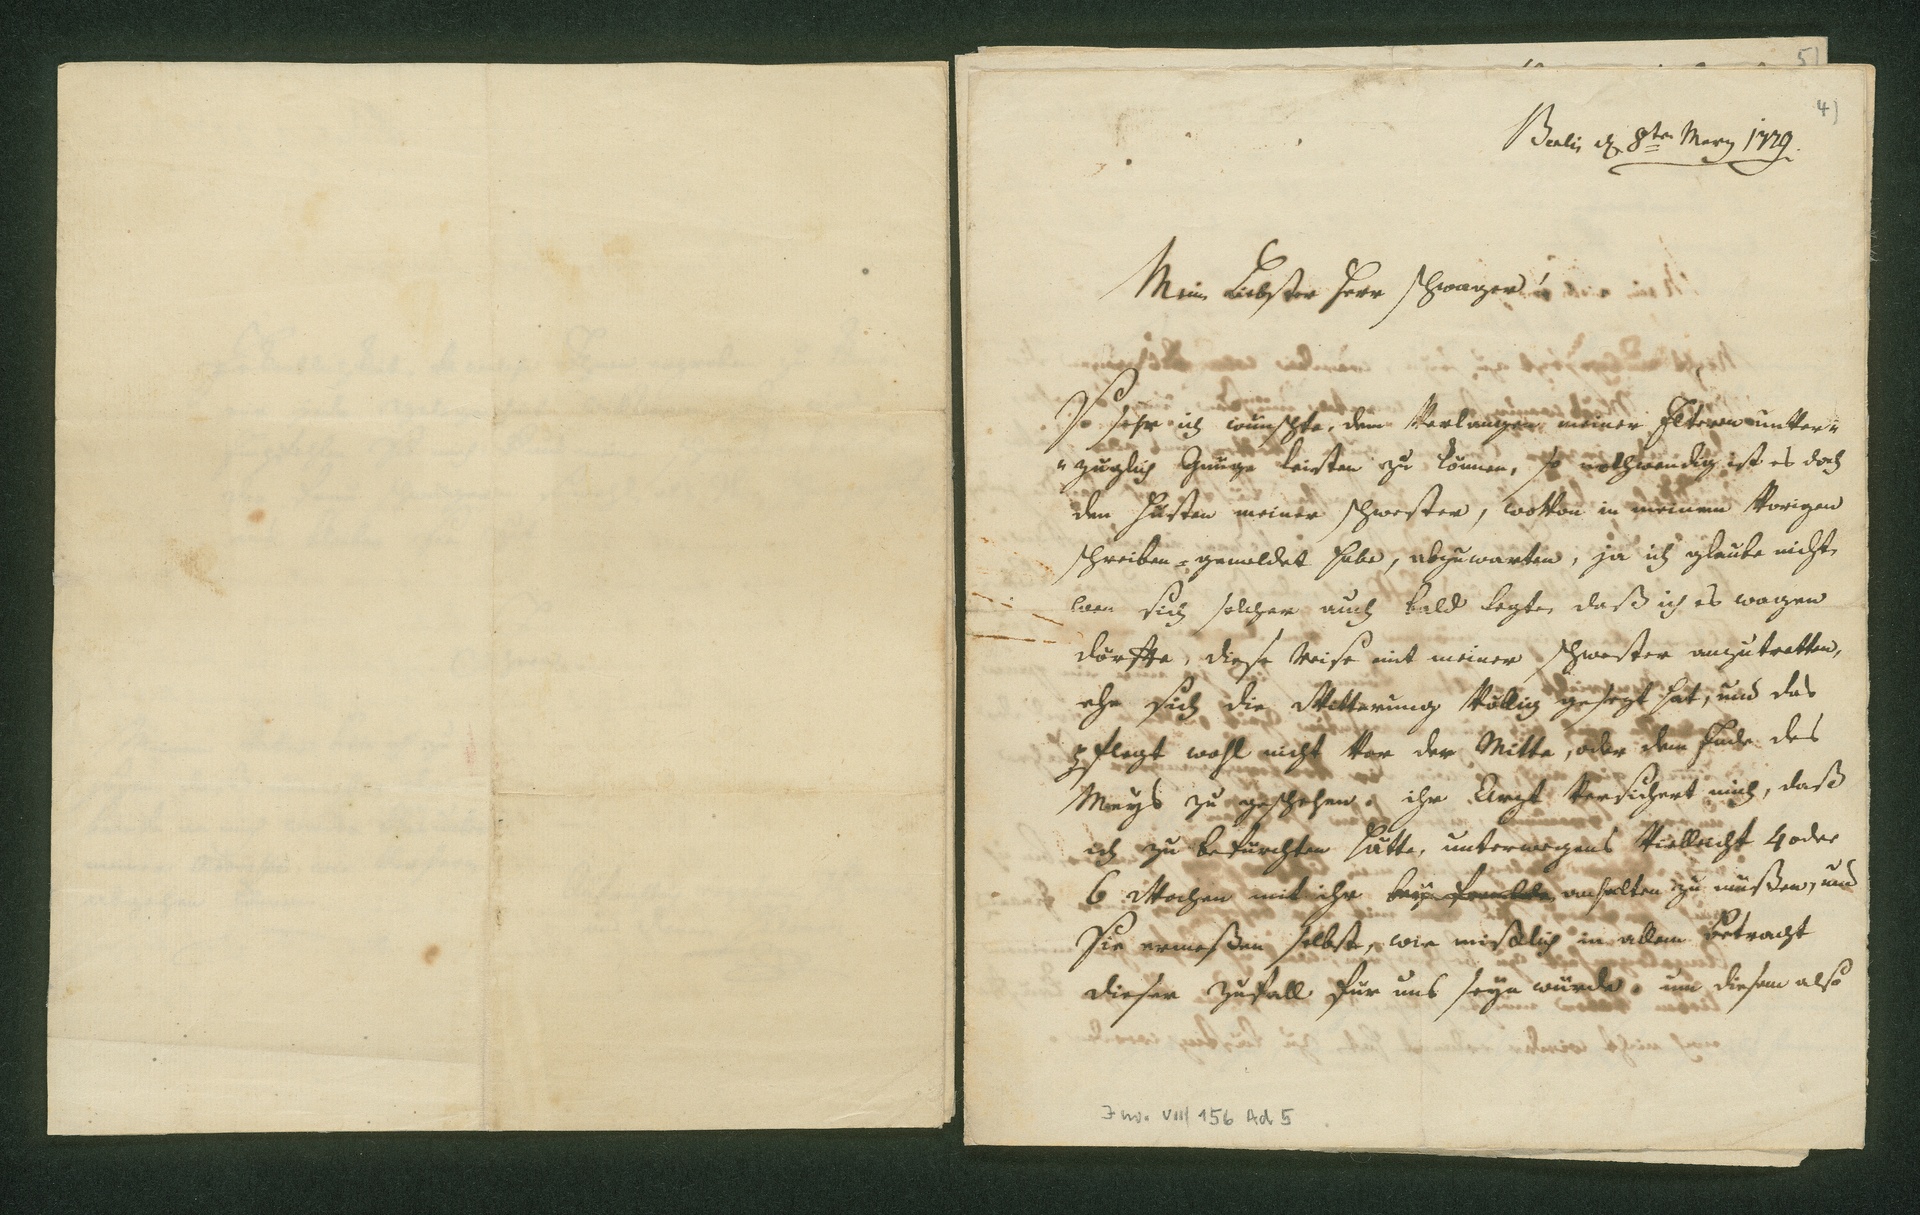 5)
4)
Berlin d. 8ten Merz 1779.
Mein Liebster Herr Schwager!
So sehr ich wünschte, dem Verlangen meiner Elteren unver=
=züglich Gnüge leisten zu können, so nothwendig ist es doch
den Husten meiner Schwester, wovon in meinem Vorigen
schreiben gemeldet habe, abzuwarten, ja ich glaube nicht
wen sich solcher auch bald legte, daß ich es wagen
dörffte, diese Reise mit meiner Schwester anzutretten,
ehe sich die Witterung Völlig gesezt hat, und das
pflegt wohl nicht Vor der Mitte, oder dem Ende des
Meys zu geschehen. ihr Arzt Versichert mich, daß
ich zu befürchten hätte, unterwegens Vielleicht 4 oder
6 Wochen mit ihr anhalten zu müßen, und
Sie ermeßen selbst, wie mißlich in allem betracht
dieser Zufall für uns seyn würde. um diesem also
Inv. VIII/156 Ad 5